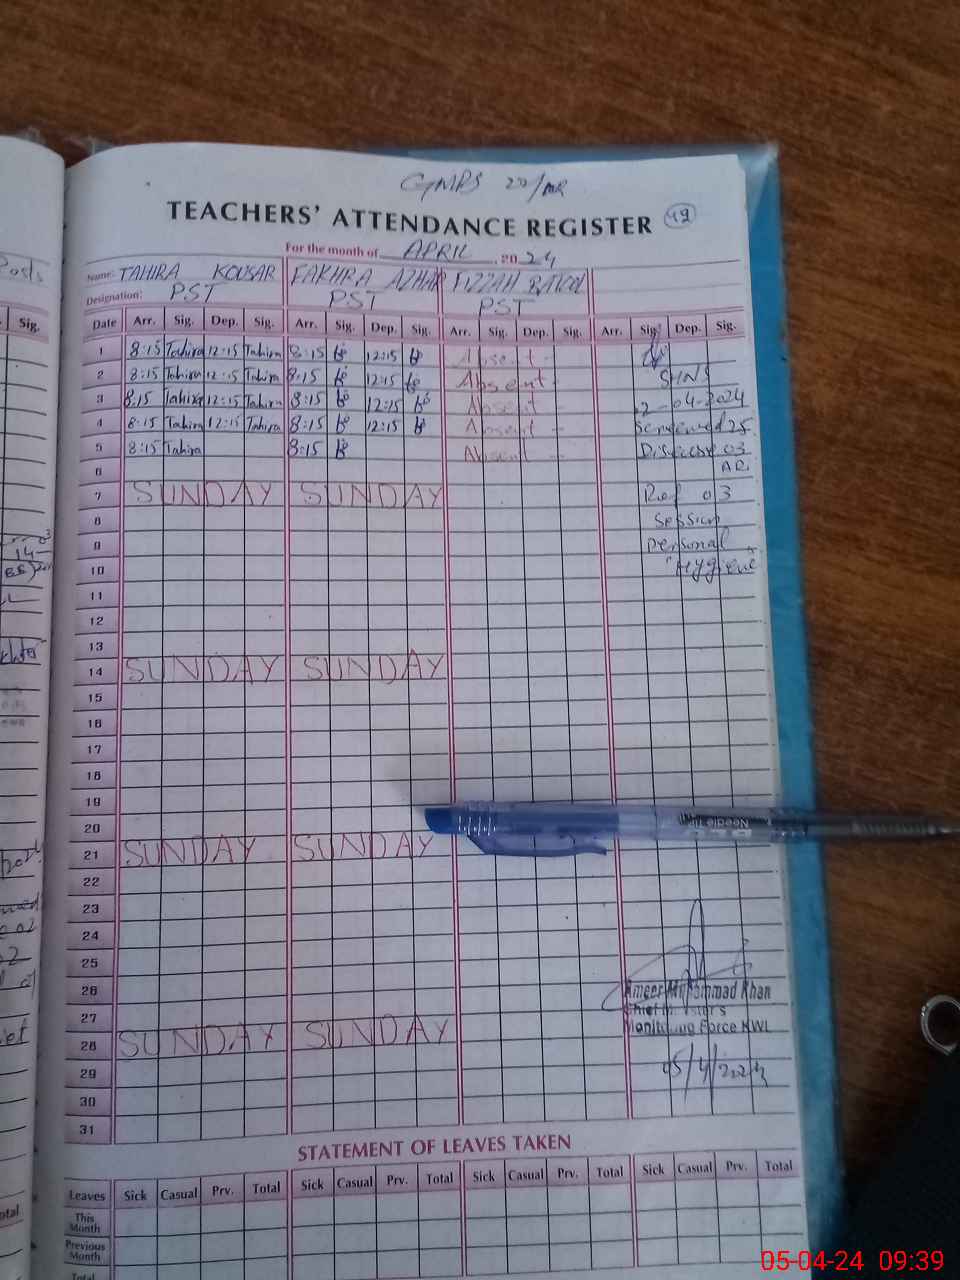 GMPS 22/MR
TEACHERS' ATTENDANCE REGISTER 49
For the month of APRIL, 2024
Name: TAHIRA KOUSAR FAKHRA AZHAR FIZZAH BATOOL
Designation: PST PST PST
Date Arr. Sig. Dep. Sig. Arr. Sig. Dep. Sig. Arr. Sig. Dep. Sig. Arr. Sig. Dep. Sig.
1 8:15 Tahira 12:15 Tahira 8:15 12:15 Absent -
2 8:15 Tahira 12:15 Tahira 8:15 12:15 Absent - SHNS
3 8:15 Tahira 12:15 Tahira 8:15 12:15 Absent - 2-04-2024
4 8:15 Tahira 12:15 Tahira 8:15 12:15 Absent - Screened 25
5 8:15 Tahira 8:15 Absent - Disease 03
6
7 SUNDAY SUNDAY Ref 03
8 Session
9 Personal
10 Hygiene
11
12
13
14 SUNDAY SUNDAY
15
16
17
18
19
20
21 SUNDAY SUNDAY
22
23
24
25
26 Ameer Muhammad Khan
27 Chief Minister's
Monitoring Force KWL
28 SUNDAY SUNDAY
29 05/4/2024
30
31
STATEMENT OF LEAVES TAKEN
Leaves Sick Casual Prv. Total Sick Casual Prv. Total Sick Casual Prv. Total Sick Casual Prv. Total
This Month
Previous Month
Total
Posts
Sig.
05-04-24 09:39